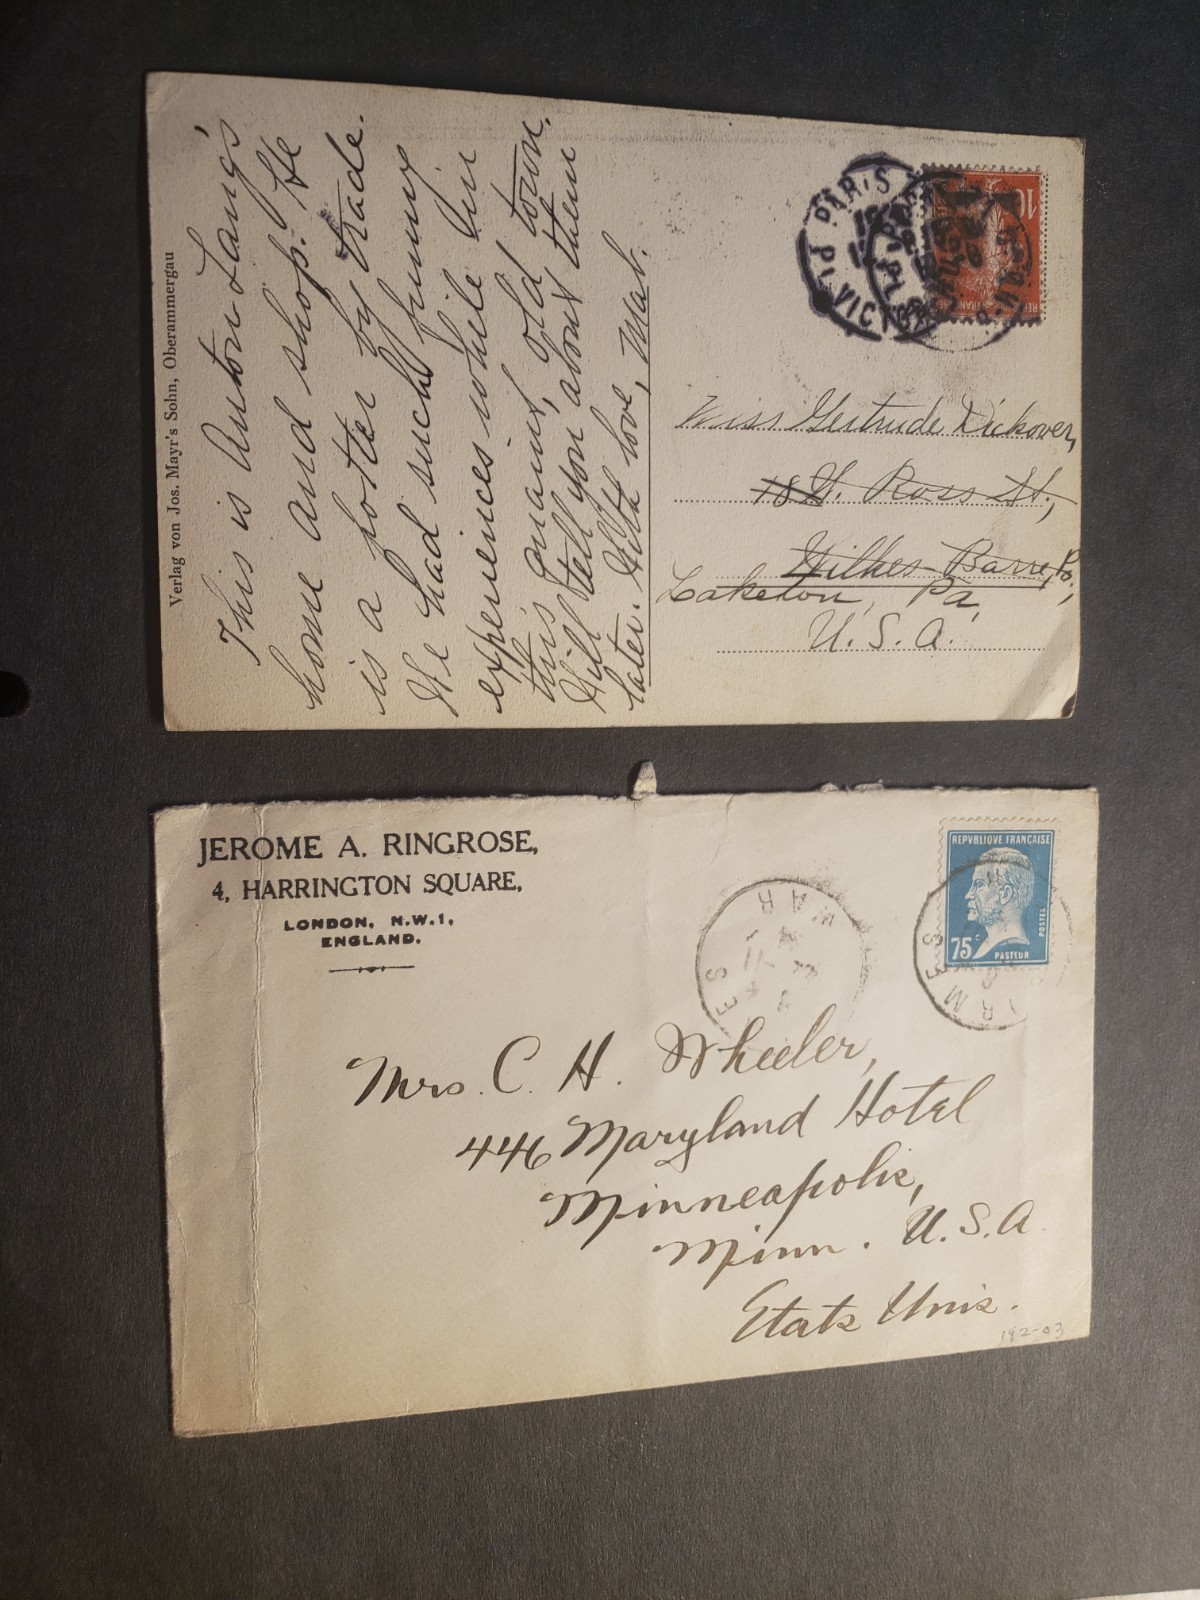 Verlag von Jos. Mayr's Sohn, Oberammergau
This is Anton Lang's
home and shop. He
is a potter by trade.
We had such funny
experiences while in
this quaint, old town.
Will tell you about them
later. With love, Mab.
10
PARIS
Miss Gertrude Dickover,
18 W. Ross St.,
Wilkes-Barre, Pa.,
Laketon, Pa,
U. S. A.
JEROME A. RINGROSE,
4, HARRINGTON SQUARE,
LONDON, N.W.1,
ENGLAND.
REPVBLIQVE FRANÇAISE
POSTES
75c
PASTEUR
Mrs. C. H. Wheeler,
446 Maryland Hotel
Minneapolis,
Minn. U.S.A.
Etats Unis.
192-03